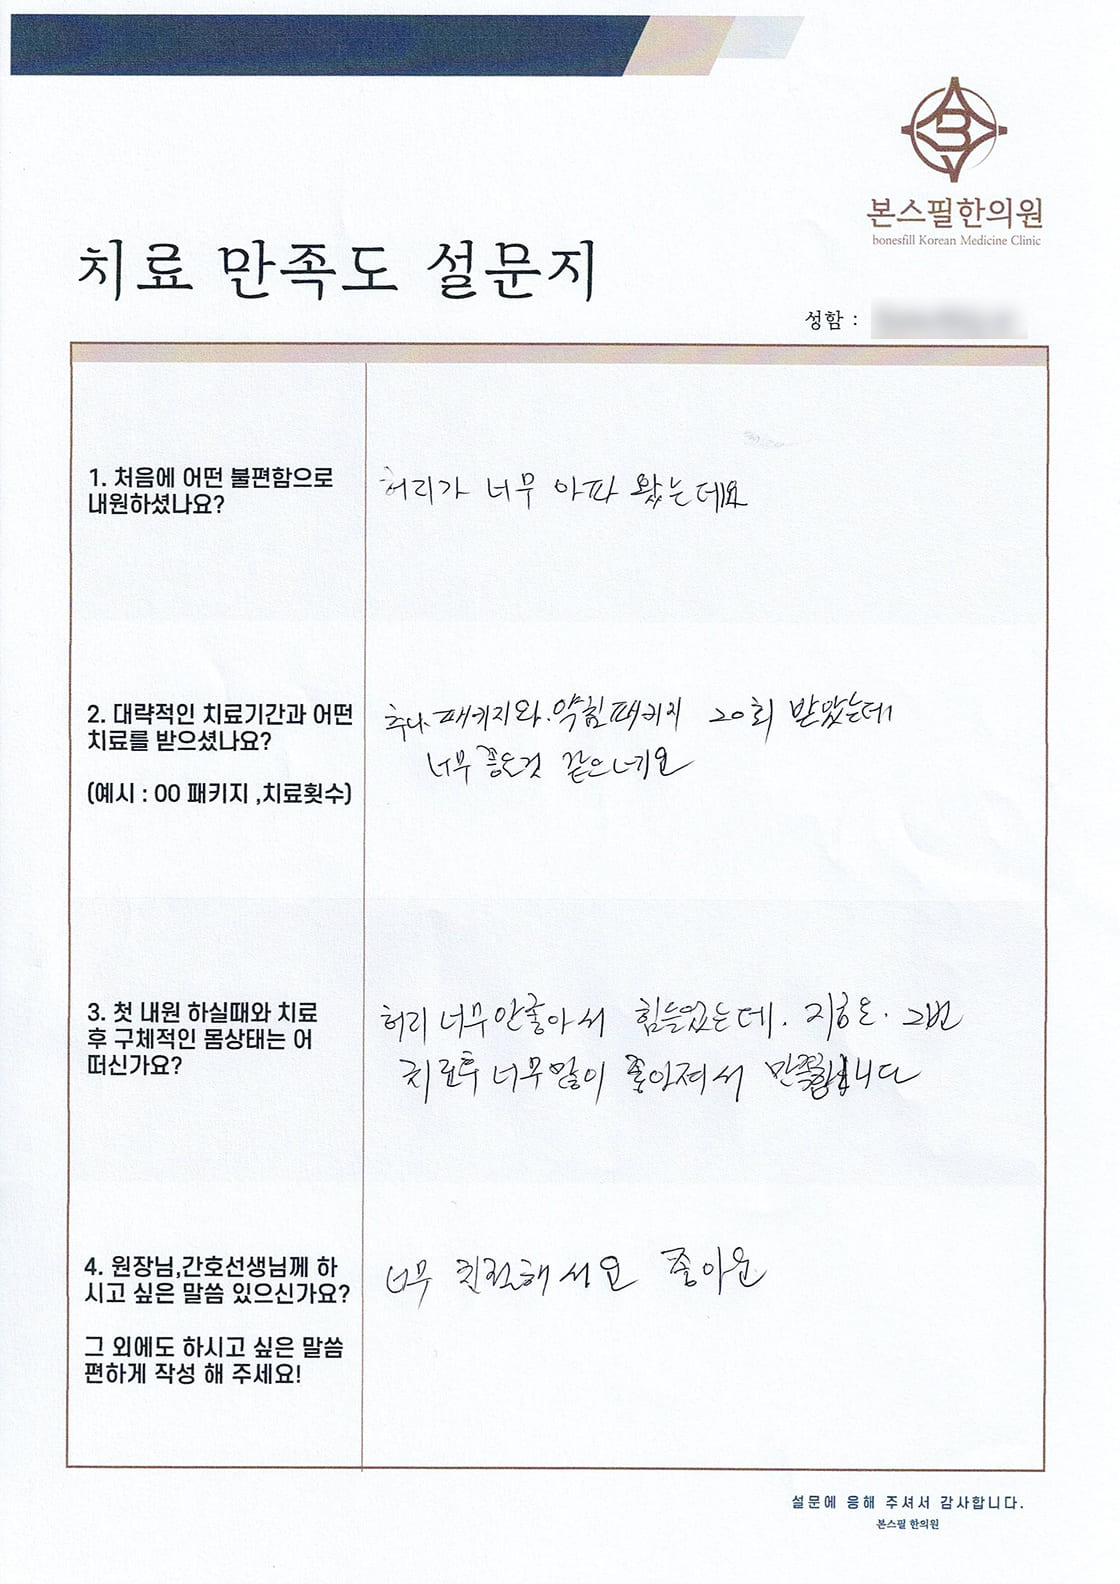 본스필한의원
bonesfill Korean Medicine Clinic
치료 만족도 설문지
성함 :
1. 처음에 어떤 불편함으로
내원하셨나요?
허리가 너무 아파 왔는데요
2. 대략적인 치료기간과 어떤
치료를 받으셨나요?
(예시 : 00 패키지 ,치료횟수)
추나.패키지와.약침패키지 20회 받았는데
너무 좋은것 같으네요
3. 첫 내원 하실때와 치료
후 구체적인 몸상태는 어
떠신가요?
허리 너무안좋아서 힘들었는데. 그번
치료후 너무많이 좋아져서 만족합니다
4. 원장님,간호선생님께 하
시고 싶은 말씀 있으신가요?
그 외에도 하시고 싶은 말씀
편하게 작성 해 주세요!
너무 친절해서요 좋아요
설문에 응해 주셔서 감사합니다.
본스필 한의원